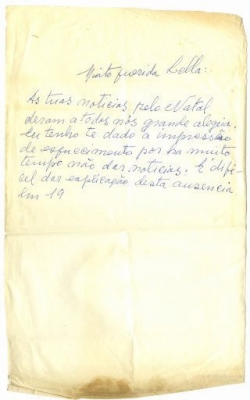 Muito querida Lella:
As tuas noticias, pelo Natal
deram a todos nós grande alegria.
Eu tenho te dado a impressão
de esquecimento por ha muito
tempo não dar noticias. É difi-
cil dar explicação desta ausencia
em 19